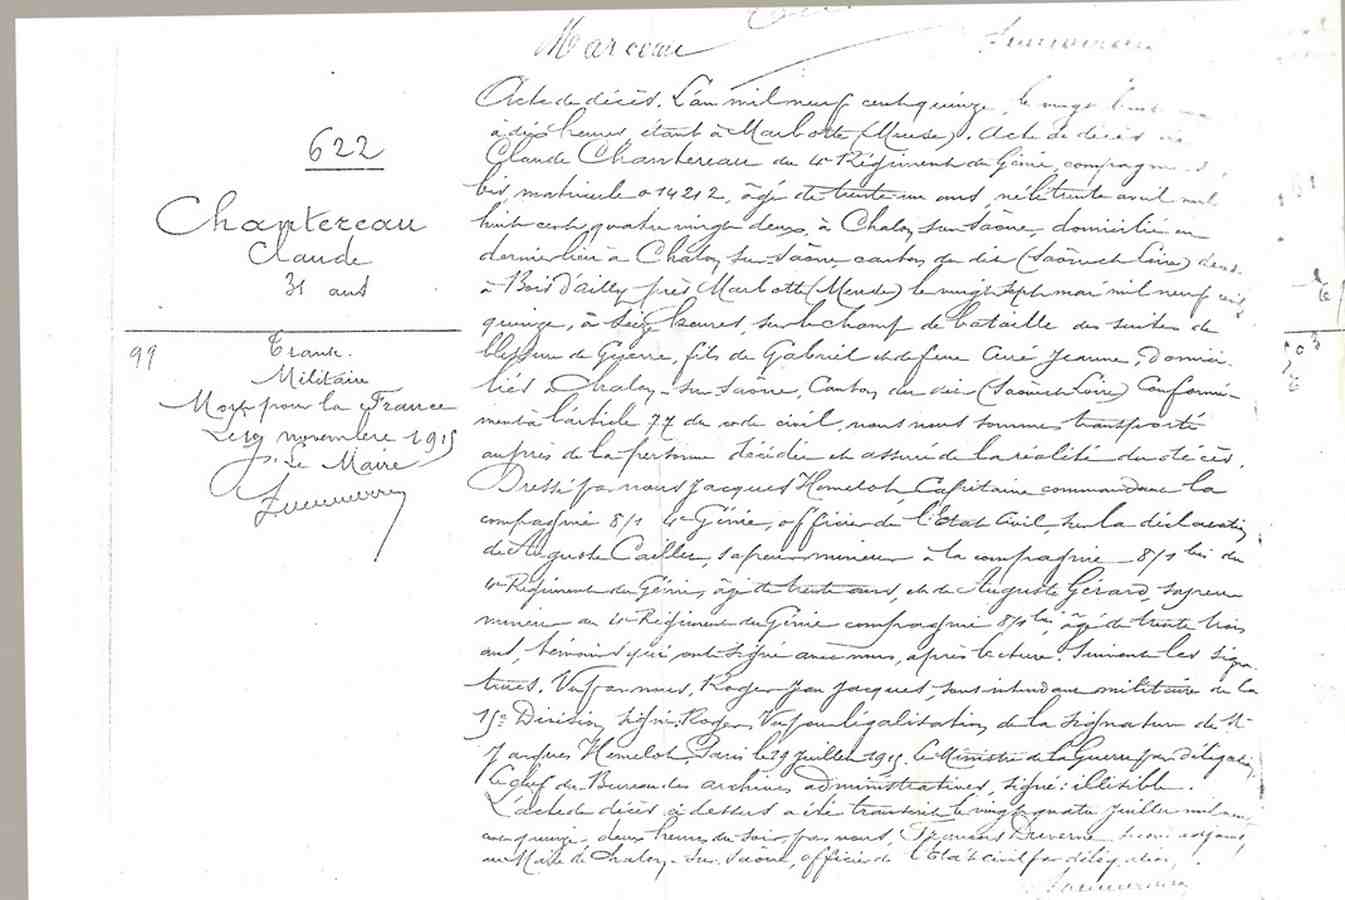 Marceau
622
Chantereau
Claude
31 ans
99
Trans.
Militaire
Mort pour la France
Le 19 novembre 1915
Le Maire
Acte de décès. L'an mil neuf cent quinze, le vingt huit
à dix heures, étant à Marbotte (Meuse). Acte de décès de
Claude Chantereau du 4e Régiment du Génie, compagnie
bis, matricule 014212, âgé de trente un ans, né le trente avril mil
huit cent quatre vingt deux, à Chalon sur Saône, domicilié en
dernier lieu à Chalon sur Saône, canton du dit (Saône et Loire) décédé
à Bois d'ailly près Marbotte (Meuse) le vingt sept mai mil neuf cent
quinze, à seize heures, sur le champ de bataille des suites de
blessure de Guerre, fils de Gabriel et de feue Curé Jeanne, domici-
liés à Chalon-sur-Saône, Canton du dit (Saône et Loire) Conformé-
ment à l'article 77 du code civil, nous nous sommes transporté
auprès de la personne décédée et assuré de la réalité du décès.
Dressé par nous Jacques Homelot, Capitaine commandant la
compagnie 8/1 4e Génie, officier de l'Etat Civil, sur la déclaration
de Auguste Cailler, sapeur mineur à la compagnie 8/1 bis du
4e Régiment du Génie, âgé de trente ans, et de Auguste Gérard, sapeur
mineur au 4e Régiment du Génie compagnie 8/1 bis, âgé de trente trois
ans, témoins qui ont signé avec nous, après lecture. Suivent les signa-
tures. Vu par nous, Roger Jean Jacques, sous intendant militaire de la
15e Division, signé: Roger, Vu pour légalisation de la signature de Mr
Jacques Homelot Paris le 29 juillet 1915. Le Ministre de la Guerre par délégation,
Le chef du Bureau des archives administratives, signé: illisible.
L'acte de décès ci dessus a été transcrit le vingt quatre juillet mil neuf
cent quinze, deux heures du soir, par nous, François Duverne second adjoint
au Maire de Chalon-sur-Saône, officier de l'Etat civil par délégation,